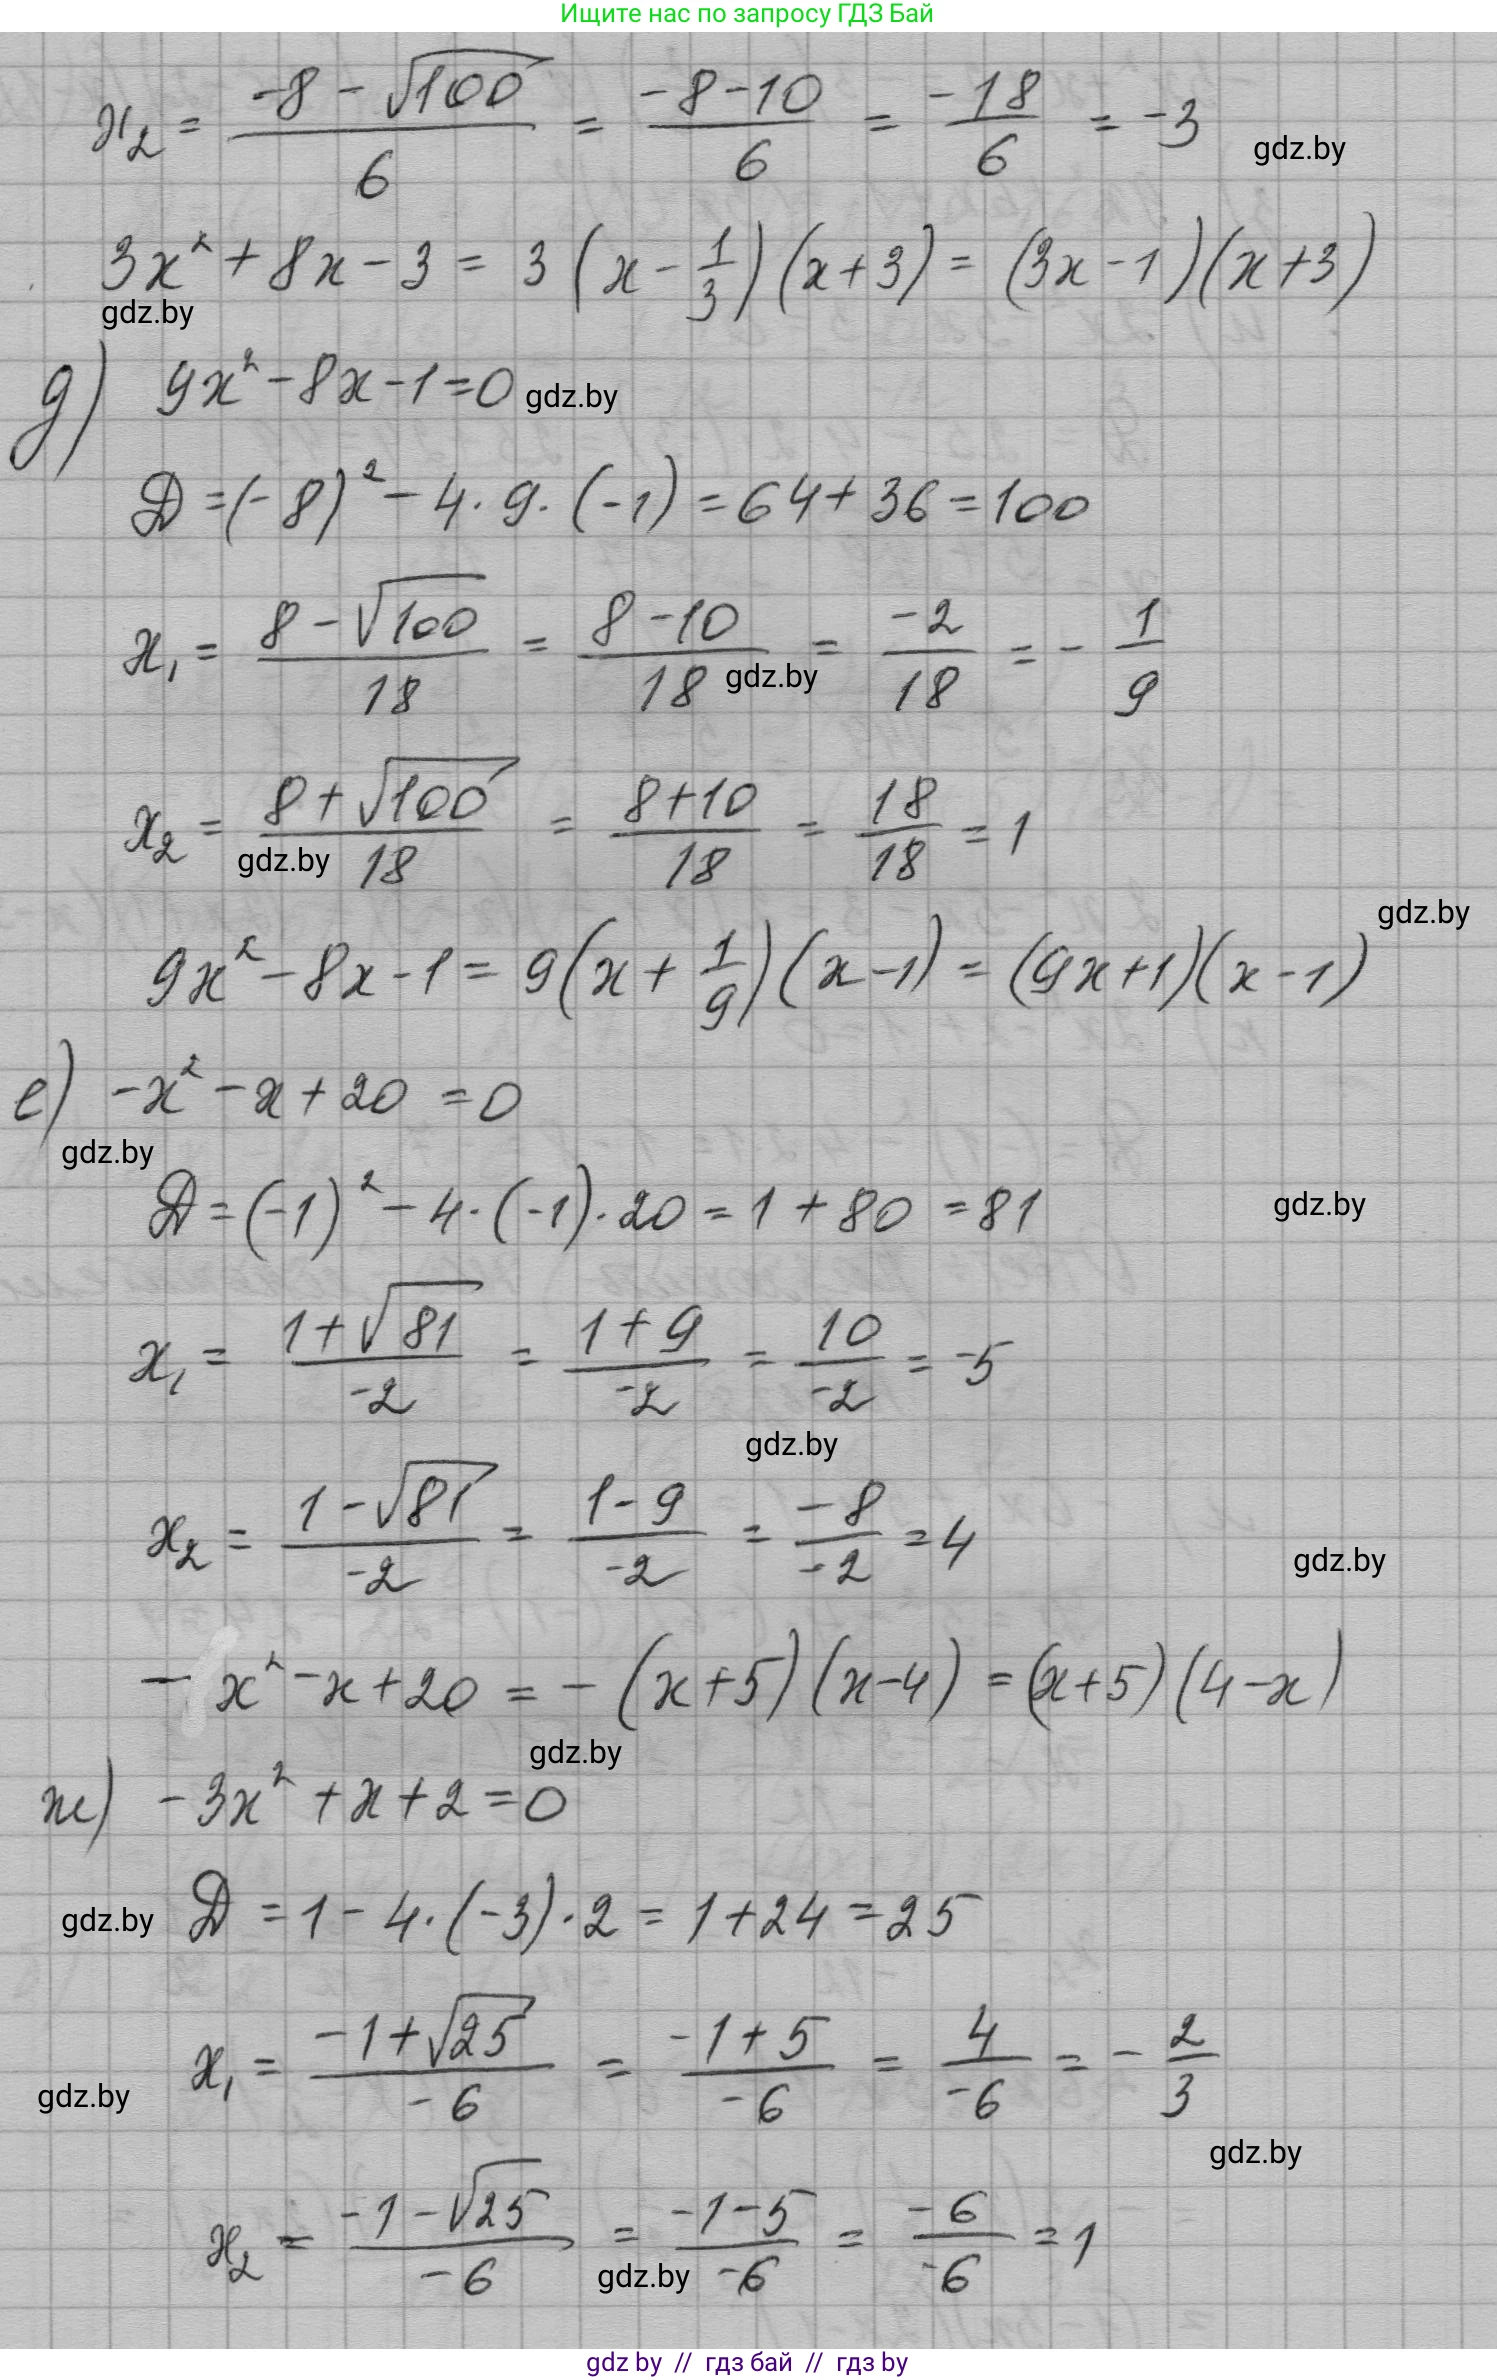 Ищите нас по запросу ГДЗ Бай
x₂ = (-8 - √100)/6 = (-8-10)/6 = -18/6 = -3
gdz.by
3x² + 8x - 3 = 3(x - 1/3)(x+3) = (3x-1)(x+3)
gdz.by
д) 9x² - 8x - 1 = 0
gdz.by
D = (-8)² - 4·9·(-1) = 64 + 36 = 100
x₁ = (8 - √100)/18 = (8-10)/18 = -2/18 = - 1/9
gdz.by
x₂ = (8 + √100)/18 = (8+10)/18 = 18/18 = 1
gdz.by
gdz.by
9x² - 8x - 1 = 9(x + 1/9)(x-1) = (9x+1)(x-1)
е) -x² - x + 20 = 0
gdz.by
D = (-1)² - 4·(-1)·20 = 1 + 80 = 81
gdz.by
x₁ = (1 + √81)/-2 = (1+9)/-2 = 10/-2 = -5
gdz.by
x₂ = (1 - √81)/-2 = (1-9)/-2 = -8/-2 = 4
gdz.by
- x² - x + 20 = - (x+5)(x-4) = (x+5)(4-x)
gdz.by
ж) -3x² + x + 2 = 0
gdz.by
D = 1 - 4·(-3)·2 = 1 + 24 = 25
x₁ = (-1 + √25)/-6 = (-1+5)/-6 = 4/-6 = - 2/3
gdz.by
gdz.by
x₂ = (-1 - √25)/-6 = (-1-5)/-6 = -6/-6 = 1
gdz.by
gdz by // гдз бай // гдз by